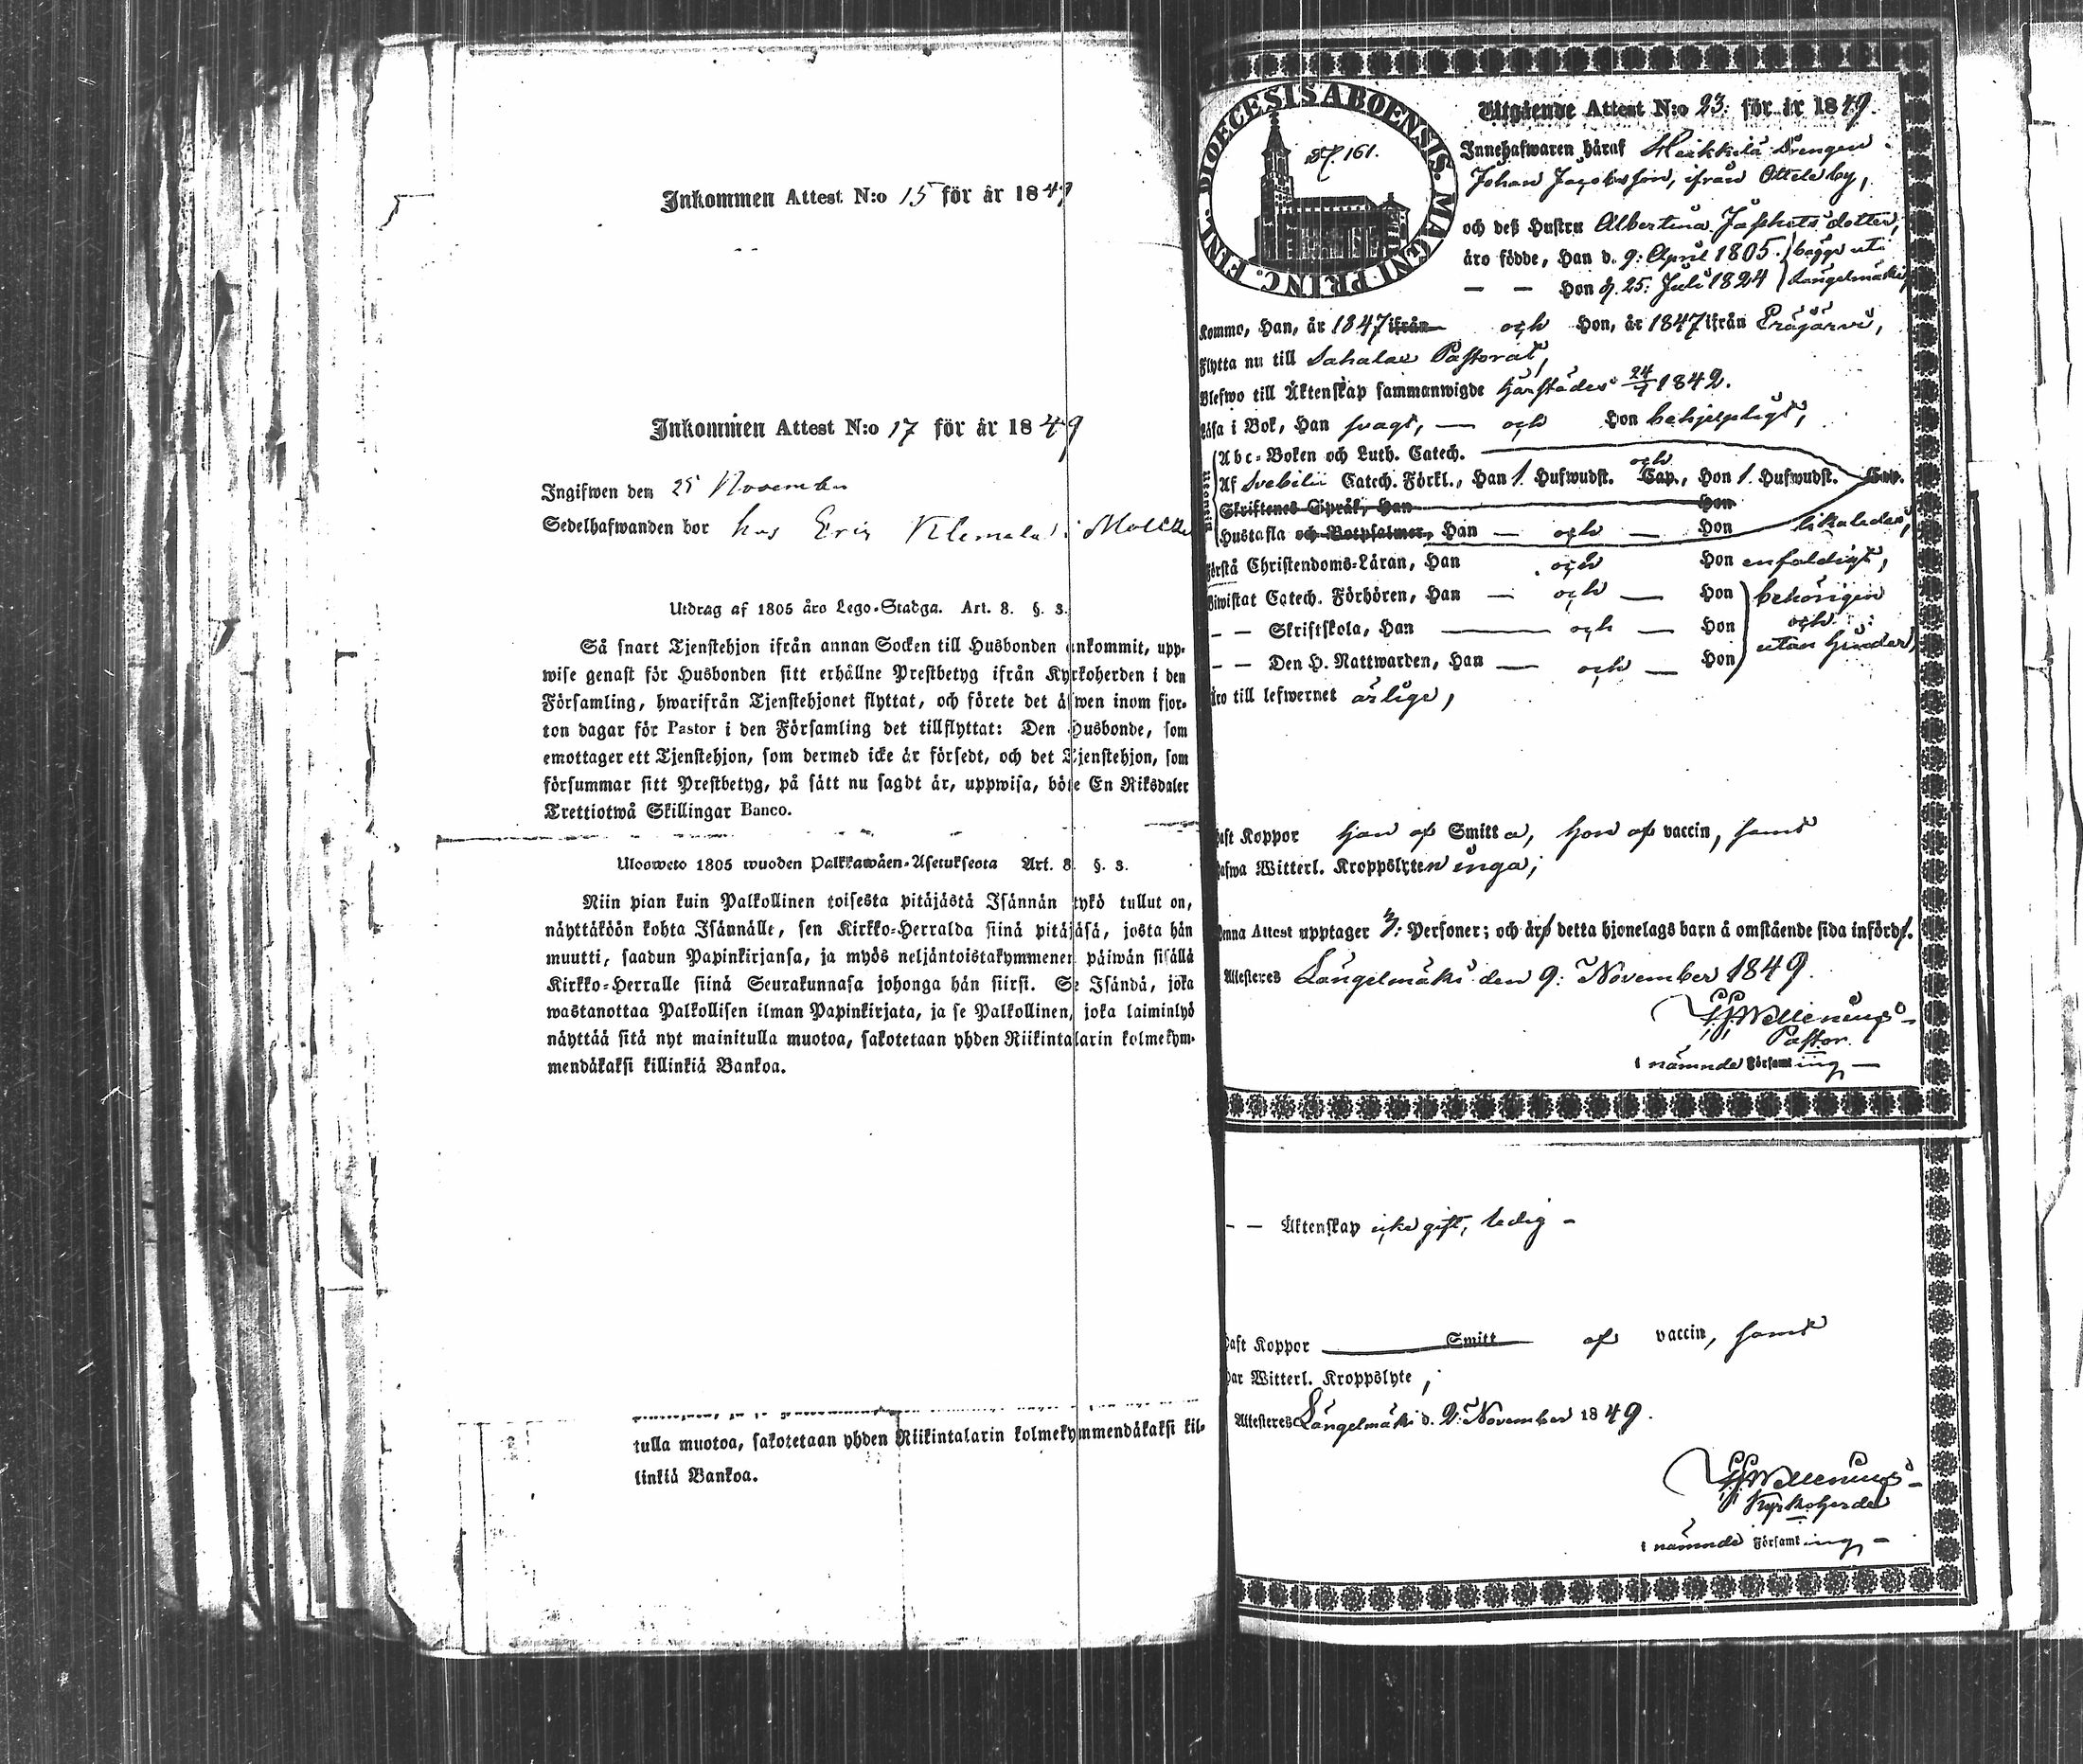 Inkommen Attest N:o 15 för år 1849
Inkommen Attest N:o 17 för år 1849
Ingifwen den 25 November
Sedelhafwanden bor hos Eric Klemola i
Utdrag af 1805 års Lego-Stadga. Art. 8. §. 3.
Så snart Tjenstehjon ifrån annan Socken till Husbonden ankommit, upp-
wise genast för Husbonden sitt erhållne Prestbetyg ifrån Kyrkoherden i den
Församling, hwarifrån Tjenstehjonet flyttat, och förete det äfwen inom fjor-
ton dagar för Pastor i den Församling det tillflyttat: Den Husbonde, som
emottager ett Tjenstehjon, som dermed icke är försedt, och det Tjenstehjon, som
försummar sitt Prestbetyg, på sätt nu sagdt är, uppwisa, böte En Riksdaler
Trettiotwå Skillingar Banco.
Ulosweto 1805 wuoden Palkkawäen-Asetuksesta Art. 8. §. 3.
Niin pian kuin Palkollinen toisesta pitäjästä Isännän tykö tullut on,
näyttäköön kohta Isännälle, sen Kirkko-Herralda siinä pitäjäsä, josta hän
muutti, saadun Papinkirjansa, ja myös neljäntoistakymmenen päiwän sisällä
Kirkko-Herralle siinä Seurakunnasa johonga hän siirsi. Se Isändä, joka
wastanottaa Palkollisen ilman Papinkirjata, ja se Palkollinen, joka laiminlyö
näyttää sitä nyt mainitulla muotoa, sakotetaan yhden Riikintalarin kolmekym-
mendäkaksi killinkiä Bankoa.
tulla muotoa, sakotetaan yhden Riikintalarin kolmekymmendäkaksi kil-
linkiä Bankoa.
DIOECESIS ABOENSIS. MAGNI PRINC. FINL.
161.
Utgående Attest N:o 23. för år 1849.
Innehafwaren häraf Heikkilä Drengen
Johan Jacobsson, ifrån Ottele by,
och deß Hustru Albertina Japhetsdotter,
äro födde, Han d. 9: April 1805. bägge uti
— — Hon d. 25: Juli 1824 Längelmäki,
Kommo, Han, år 1847 ifrån och Hon, år 1847 ifrån Eräjärvi,
Flytta nu till Sahalax Pastorat,
Blefwo till Äktenskap sammanwigde härstädes 24/ 1842.
Läsa i Bok, Han svagt, — och Hon behjelpligt,
Abc-Boken och Luth. Catech.
Af Svebilii Catech. Förkl., Han 1. Hufwudst. och Cap., Hon 1. Hufwudst. Cap.
Skriftenes Språk, Han Hon
Hustafla och Botpsalmer, Han — och — Hon likaledes,
Förstå Christendoms-Läran, Han och Hon enfaldigt,
Biwistat Catech. Förhören, Han — och — Hon behörigen
— — Skriftskola, Han — och — Hon och
— — Den H. Nattwarden, Han — och — Hon utan hinder,
Äro till lefwernet ärlige,
Haft Koppor han af Smitta, hon af vaccin, samt
Hafwa Witterl. Kroppslyten inga;
Denna Attest upptager 3: Personer; och är detta hjonelags barn å omstående sida införd.
Attesteres Längelmäki den 9: November 1849.
Pastor
i nämnde Församling —
— — Äktenskap icke gift, ledig —
Haft Koppor — Smitt af vaccin, samt
Har Witterl. Kroppslyte,
Attesteres Längelmäki d. 2: November 1849.
Kyrkoherde
i nämnde Församling —